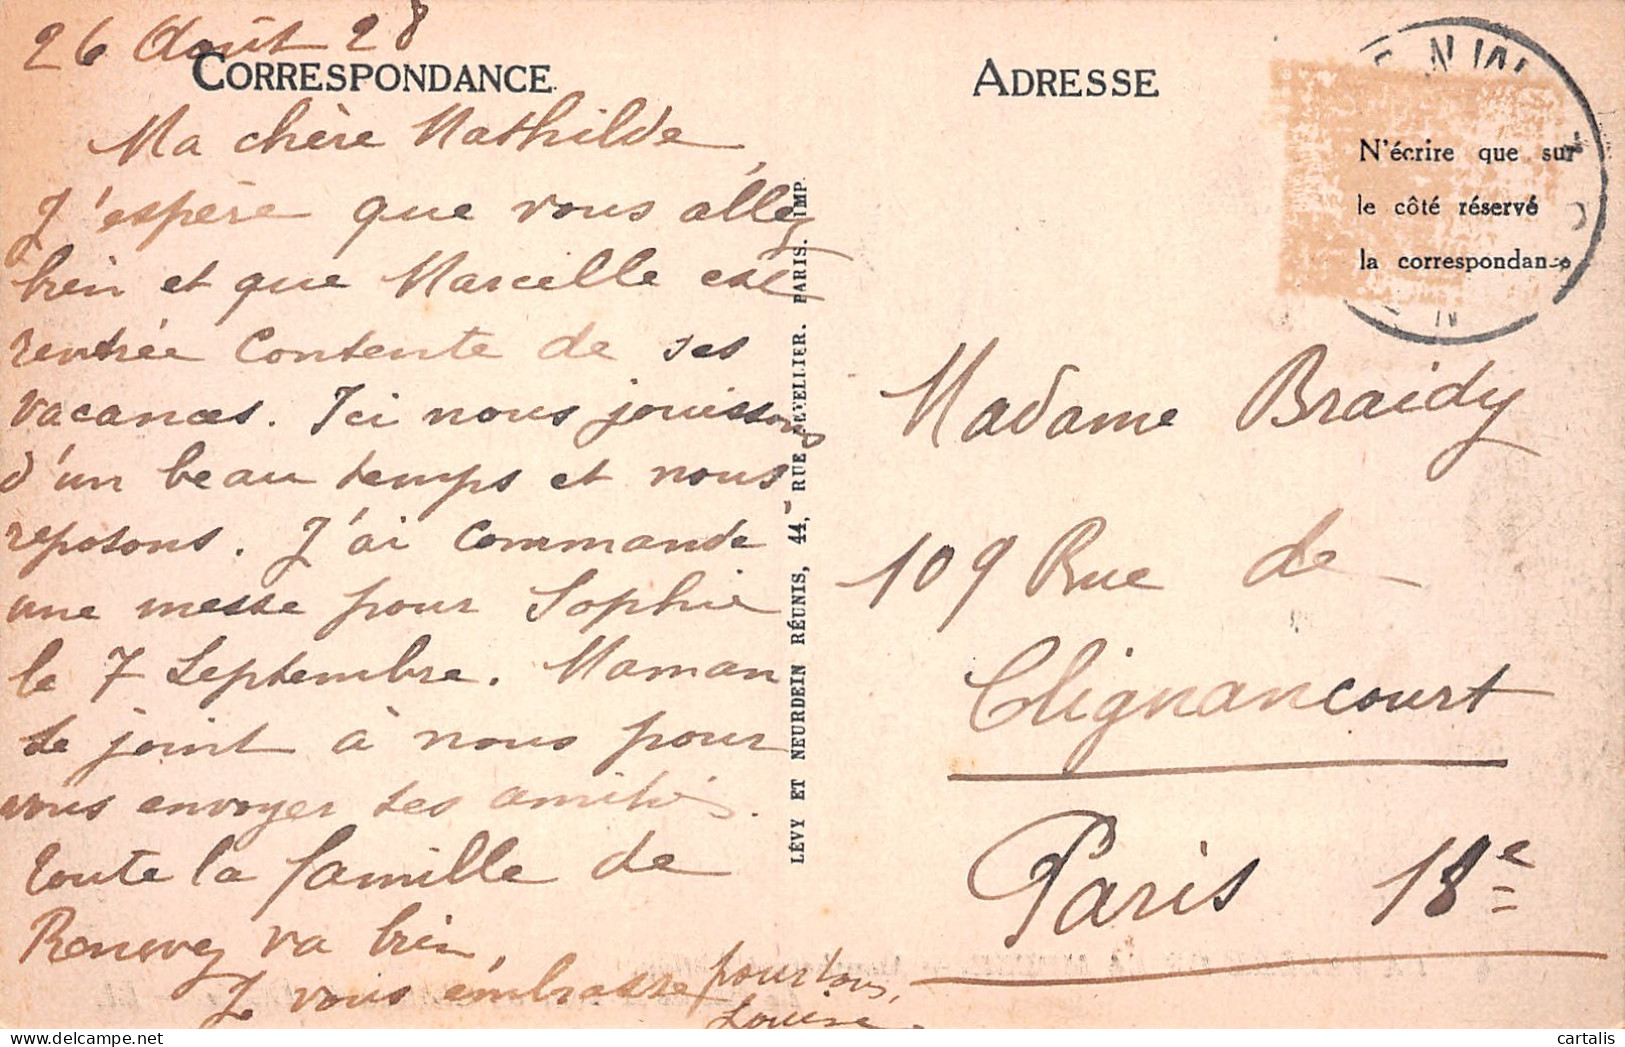 26 Août 28
CORRESPONDANCE
Ma chère Mathilde,
J'espère que vous allez
bien et que Marcelle est
rentrée contente de ses
vacances. Ici nous jouissons
d'un beau temps et nous
reposons. J'ai commandé
une messe pour Sophie
le 7 Septembre. Maman
se joint à nous pour
vous envoyer ses amitiés.
Toute la famille de
va bien,
Je vous embrasse pour tous,
Louise
LÉVY ET NEURDEIN RÉUNIS, 44, RUE LETELLIER. PARIS. IMP.
ADRESSE
N'écrire que sur
le côté réservé
la correspondance
Madame Braidy
109 Rue de
Clignancourt
Paris 18e
cartalis